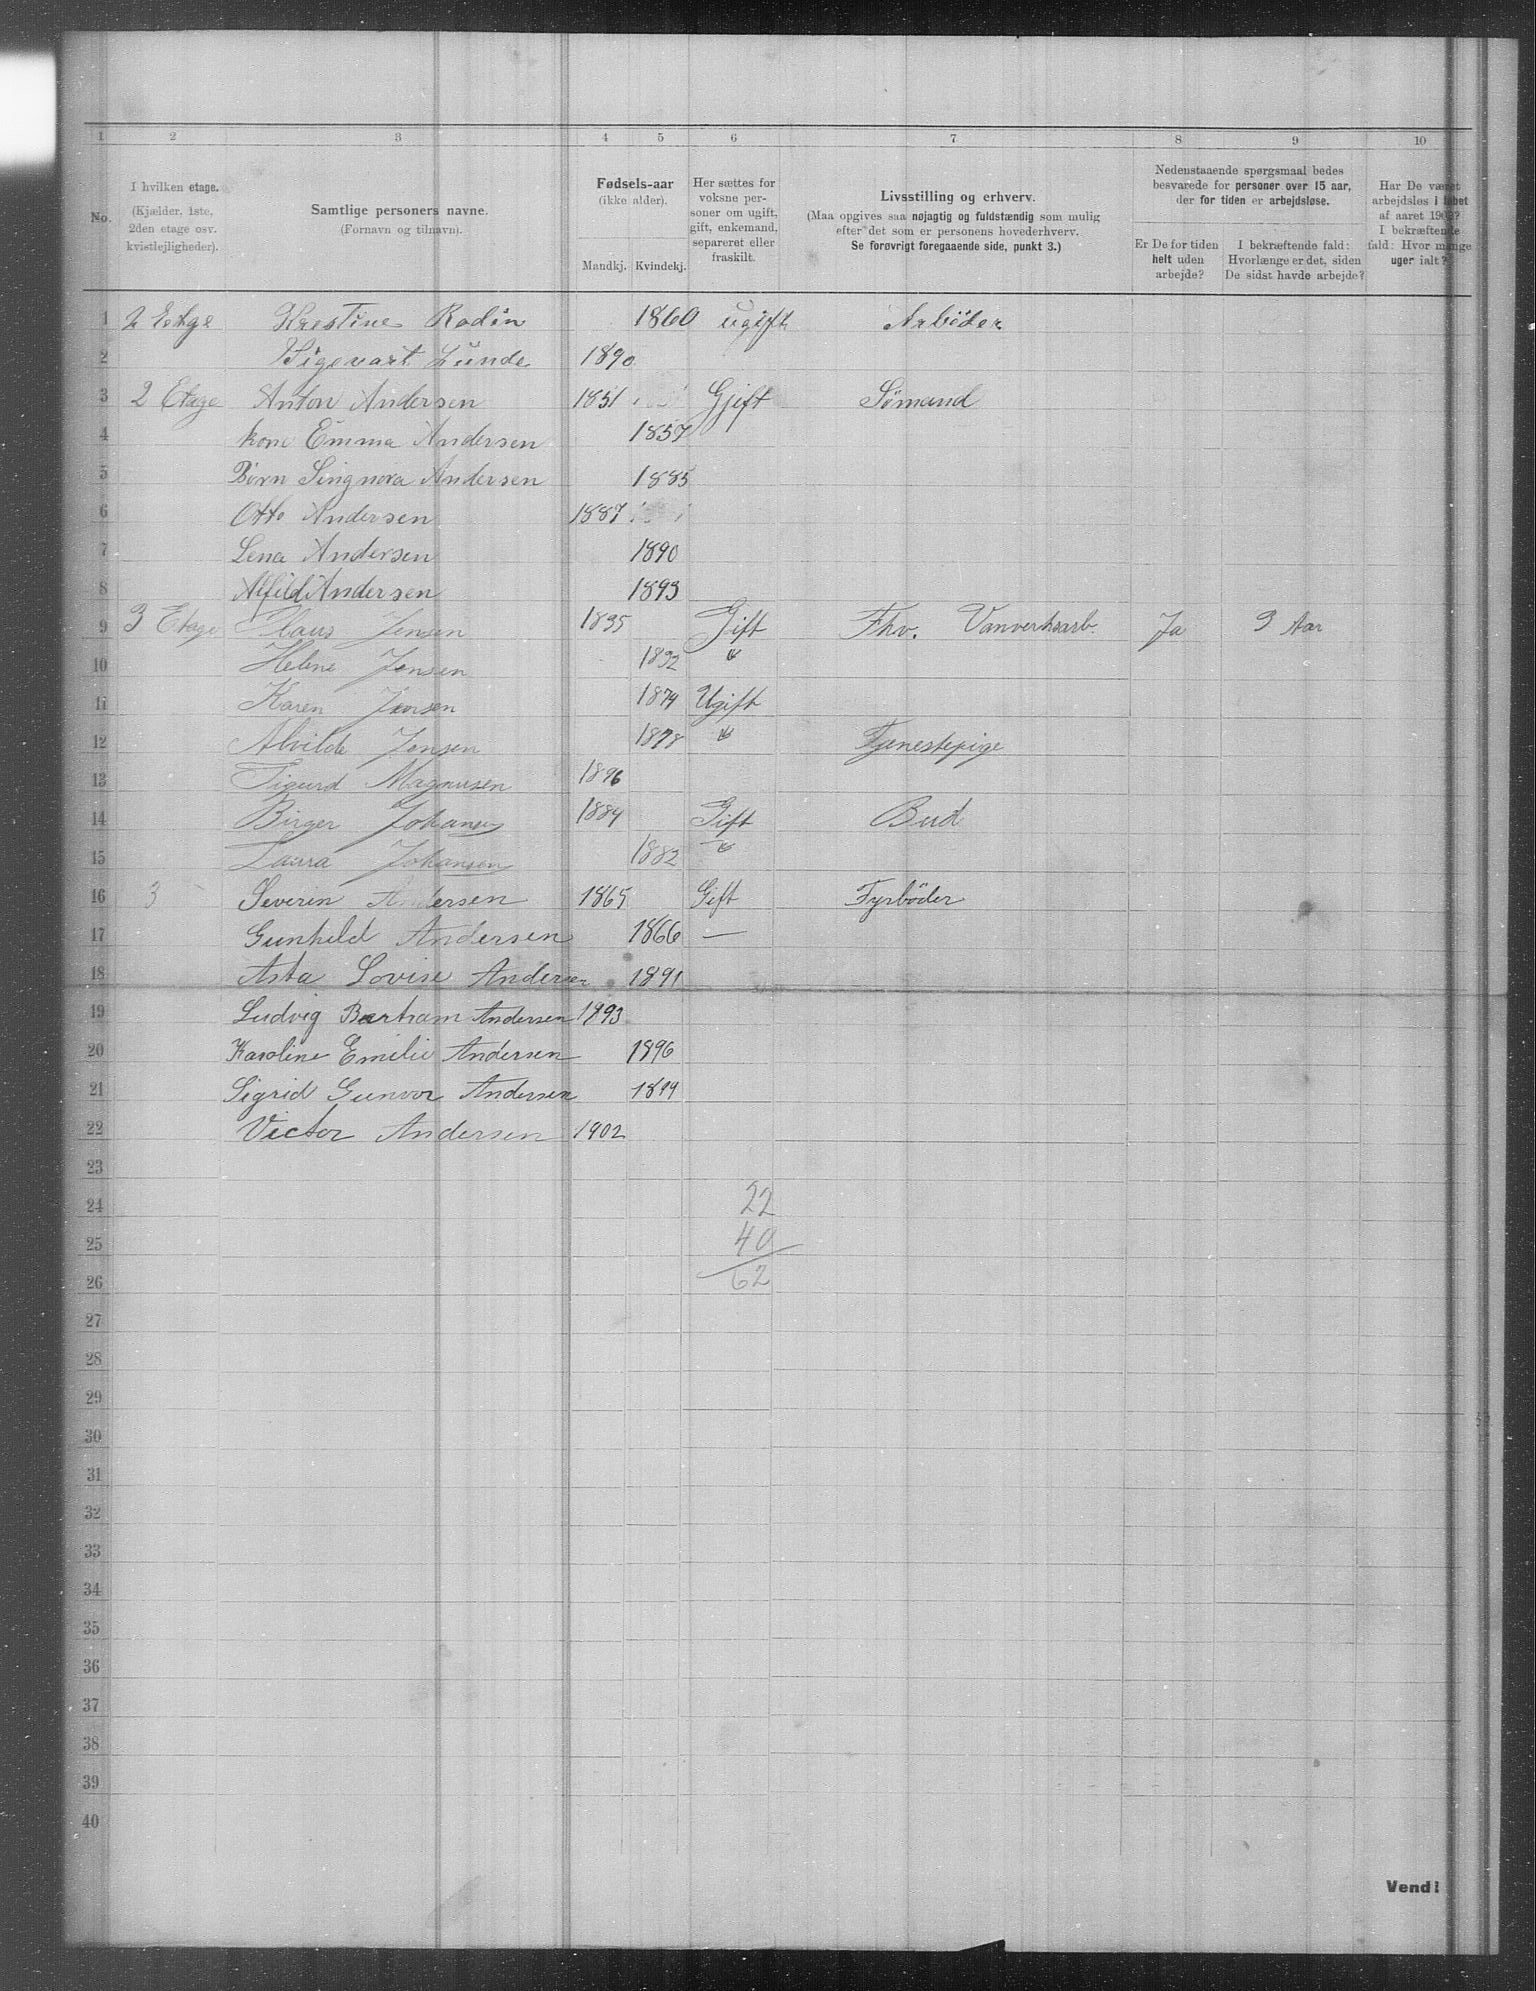 1 2 3 4 5 6 7 8 9 10
No.
I hvilken etage.
(Kjælder, 1ste,
2den etage osv.
kvistlejligheder).
Samtlige personers navne.
(Fornavn og tilnavn).
Fødsels-aar
(ikke alder).
Mandkj. Kvindekj.
Her sættes for
voksne per-
soner om ugift,
gift, enkemand,
separeret eller
fraskilt.
Livsstilling og erhverv.
(Maa opgives saa nøjagtig og fuldstændig som mulig
efter det som er personens hovederhverv.
Se forøvrigt foregaaende side, punkt 3.)
Nedenstaaende spørgsmaal bedes
besvarede for personer over 15 aar,
der for tiden er arbejdsløse.
Er De for tiden
helt uden
arbejde?
I bekræftende fald:
Hvorlænge er det, siden
De sidst havde arbejde?
Har De været
arbejdsløs i løbet
af aaret 1902?
I bekræftende
fald: Hvor mange
uger ialt?
1 2 Etage Krestine Rodin 1860 ugift Arböder
2 Sigevart Lunde 1890
3 2 Etage Anton Andersen 1851 Gjift Sømand
4 kone Emma Andersen 1857
5 Børn Singnora Andersen 1885
6 Otto Andersen 1887
7 Lena Andersen 1890
8 Alfild Andersen 1893
9 3 Etage Claus Jensen 1835 Gift Fhv. Vanverksarb. Ja 9 Aar
10 Helene Jensen 1832 "
11 Karen Jensen 1874 Ugift
12 Alvilde Jensen 1878 " Tjenestepige
13 Sigurd Magnusen 1896
14 Birger Johansen 1884 Gift Bud
15 Laura Johansen 1882 "
16 3 Severin Andersen 1865 Gift Fyrböder
17 Gunhild Andersen 1866 —
18 Asta Lovise Andersen 1891
19 Ludvig Bertram Andersen 1893
20 Karoline Emilie Andersen 1896
21 Sigrid Gunvor Andersen 1899
22 Victor Andersen 1902
23
24 22
25 40
26 62
27
28
29
30
31
32
33
34
35
36
37
38
39
40
Vend!